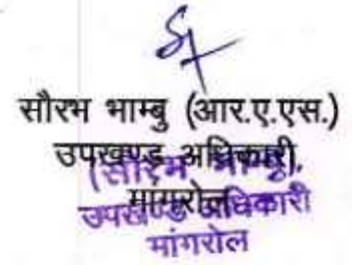 सौरभ भाम्बु (आर.ए.एस.)
उपखण्ड अधिकारी,
मांगरोल
(सौरभ
उपखण्ड अधिकारी
मांगरोल